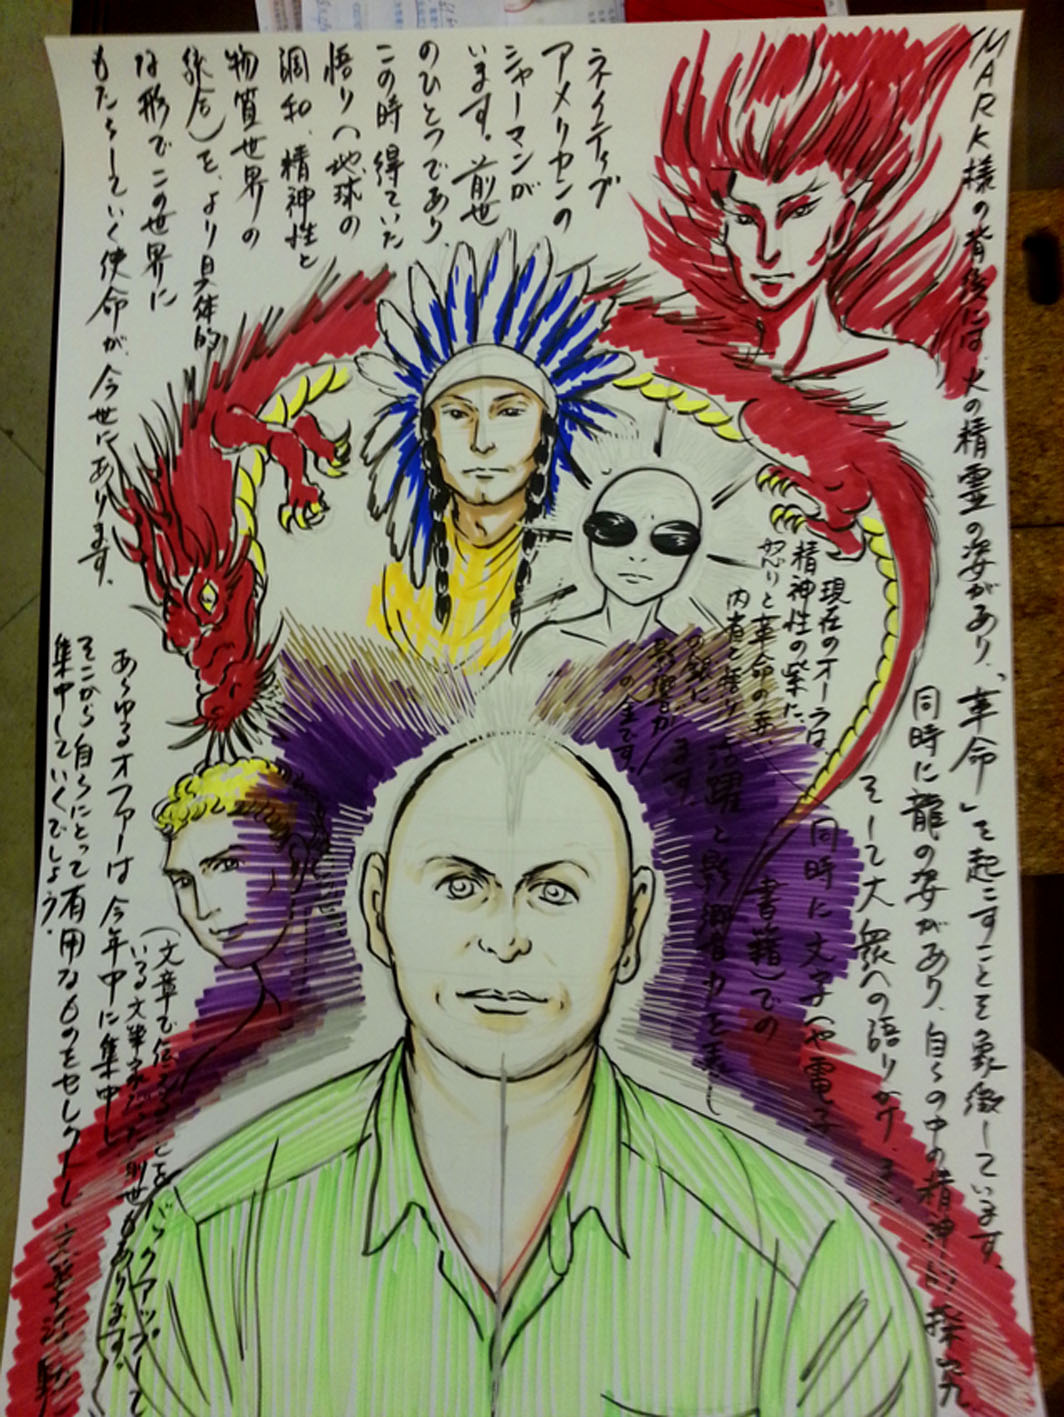 MARK様の背後には、火の精霊の姿があり、「革命」を起こすことを象徴しています。
同時に龍の姿があり、自らの中の精神的探究
そして大衆への語りかけ、
同時に文字(や電子
書籍)での
活躍と影響力を
現在のオーラは、
精神性の紫だ、
怒りと革命の赤、
内省と悟り
の銀に
影響が
ます。
の人生です。
ネイティブ
アメリカンの
シャーマンが
います。前世
のひとつであり、
この時得ていた
悟り(地球の
調和、精神性と
物質世界の
統合)を、より具体的
な形でこの世界に
もたらしていく使命が、今世にあります。
(文章で伝えることをバックアップして
いる文学者だった前世もあります。
あらゆるオファーは今年中に集中し
そこから自らにとって有用なものをセレクトし
集中していくでしょう。